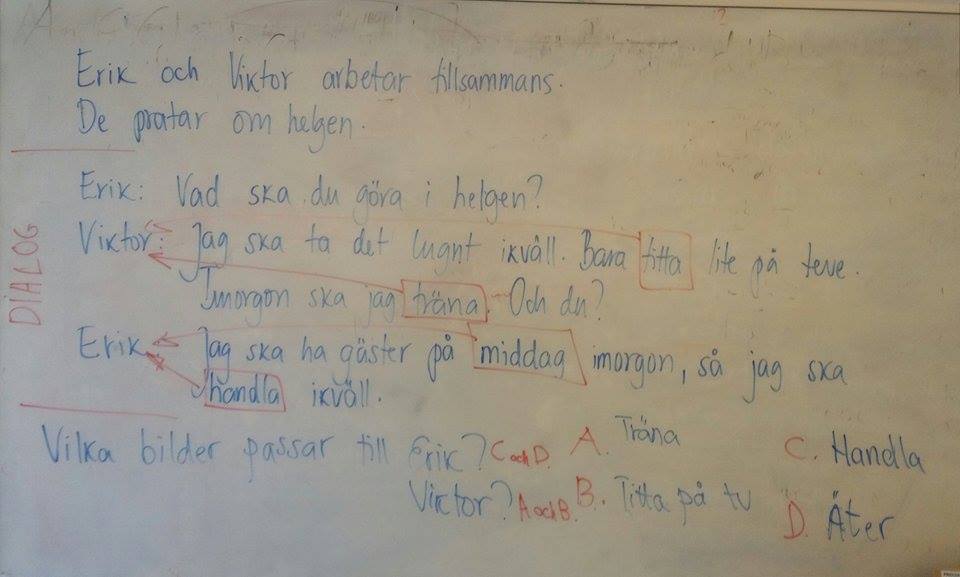 Erik och Viktor arbetar tillsammans.
De pratar om helgen.
DIALOG
Erik: Vad ska du göra i helgen?
Viktor: Jag ska ta det lugnt ikväll. Bara titta lite på teve.
Imorgon ska jag träna. Och du?
Erik: Jag ska ha gäster på middag imorgon, så jag ska
handla ikväll.
Vilka bilder passar till Erik? C och D. A. Träna C. Handla
Viktor? A och B. B. Titta på tv D. Äter